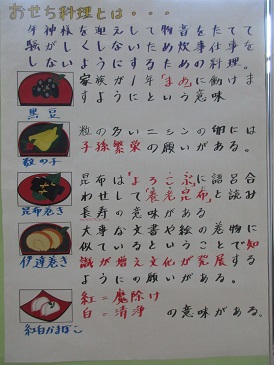 おせち料理とは・・・
年神様を迎えして物音をたてて
騒がしくしないため炊事仕事を
しないようにするための料理。
家族が1年「まめ」に働けま
すようにという意味
黒豆
数の多いニシンの卵には
子孫繁栄の願いがある。
数の子
昆布は「よろこぶ」に語呂合
わせして「養老昆布」と読み
長寿の意味がある
昆布巻き
大事な文書や絵の巻物に
似ているということで知
識が増え文化が発展する
ようにの願いがある。
伊達巻き
紅=魔除け
白=清浄 の意味がある。
紅白かまぼこ